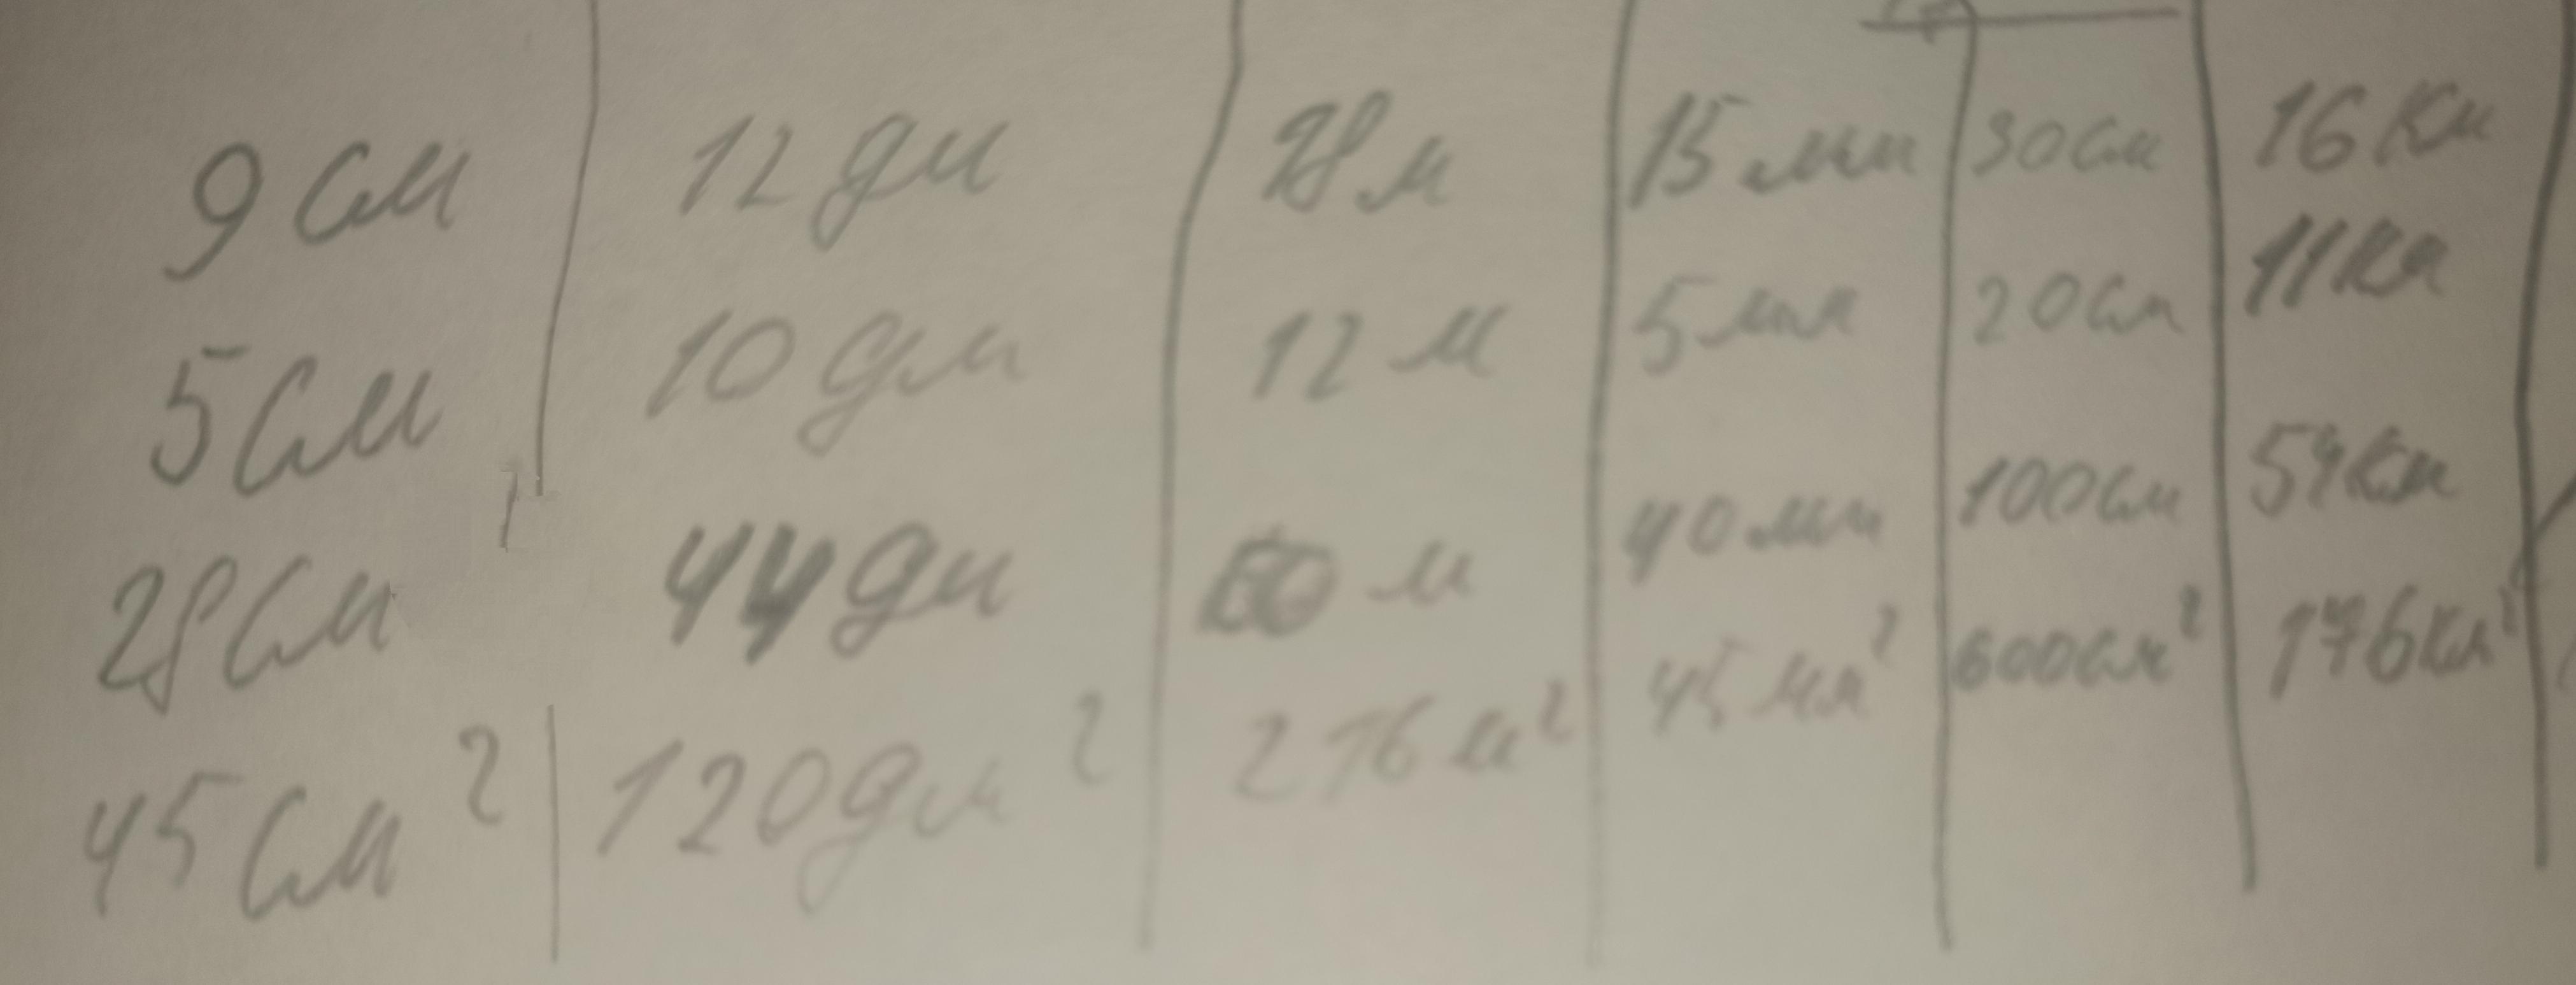 9 см 12 дм 28 м 15 мм 30 см 16 км
5 см 10 дм 12 м 5 мм 20 см 11 км
28 см 44 дм м 40 мм 100 см 54 км
45 см² 120 дм² 276 м² 45 мм² 600 см² 176 км²